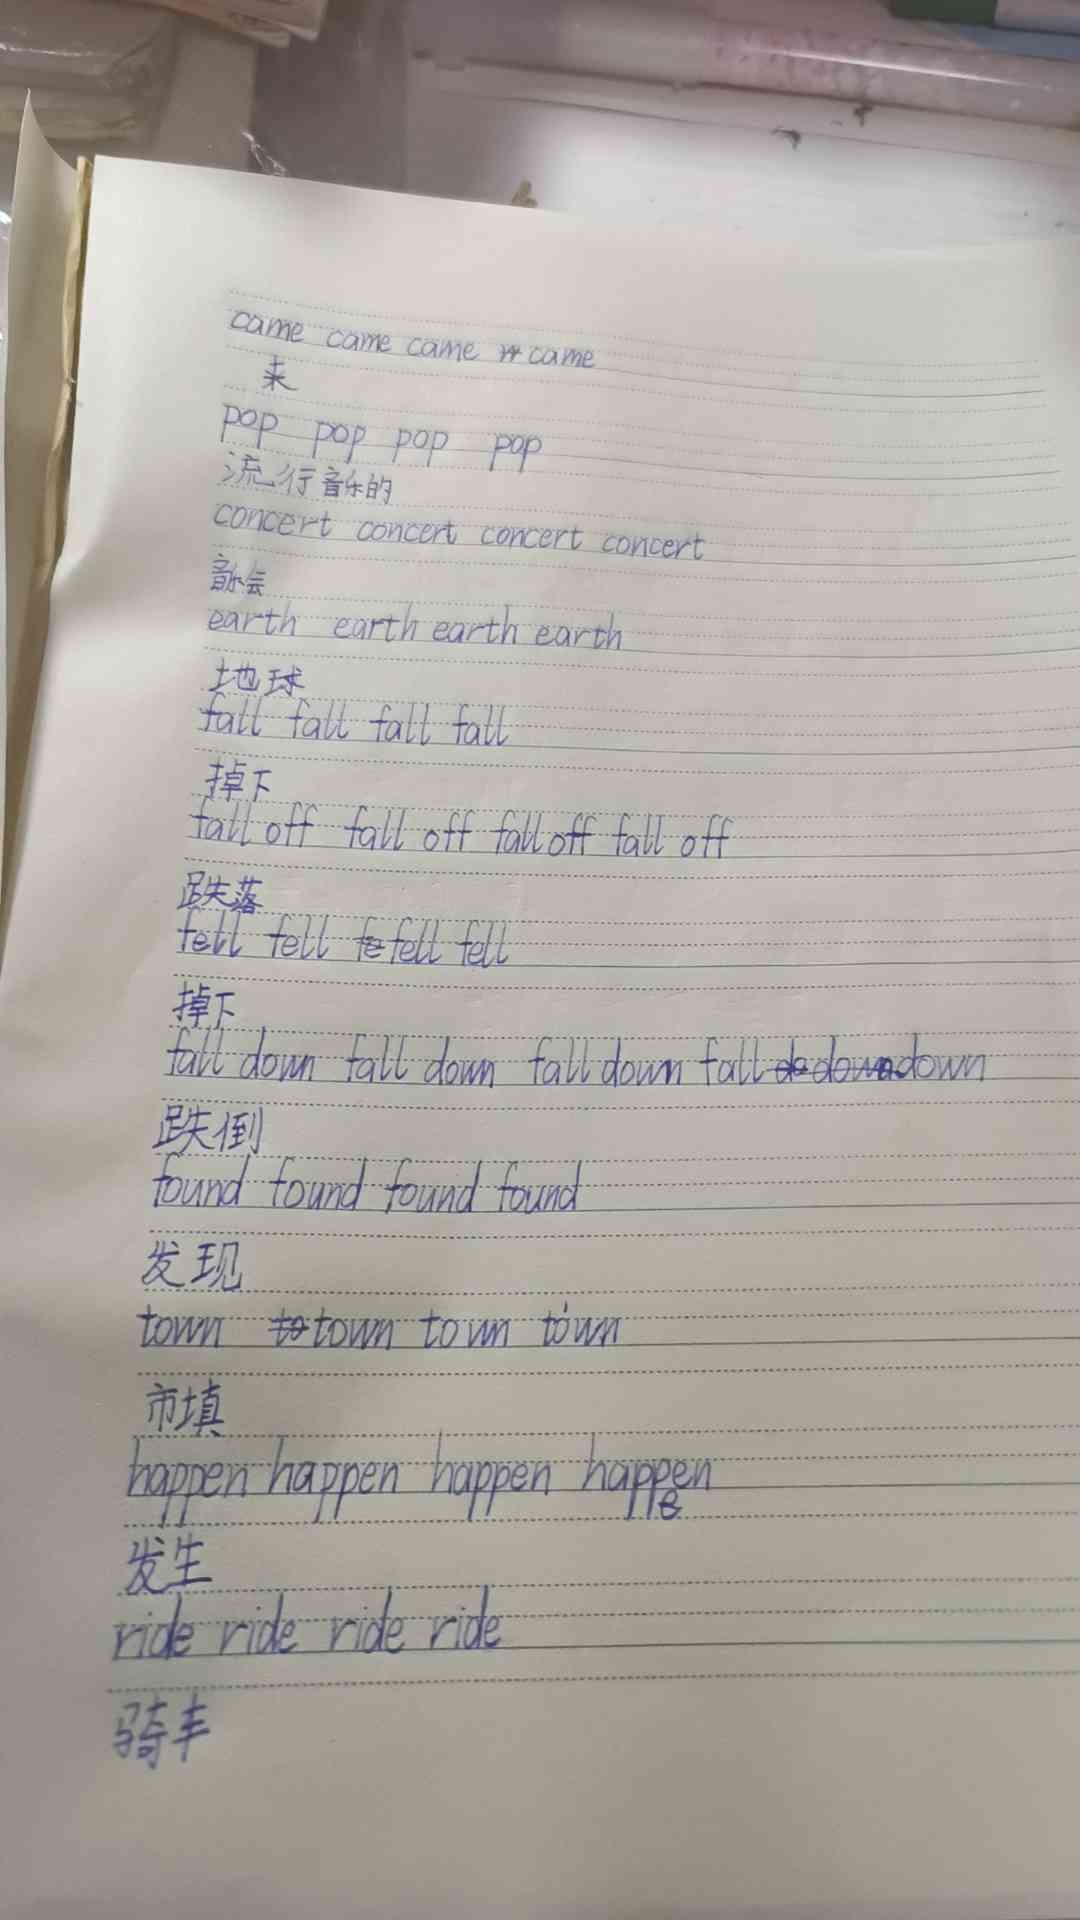 came came came came
来
pop pop pop pop
流行音乐的
concert concert concert concert
音乐会
earth earth earth earth
地球
fall fall fall fall
掉下
fall off fall off fall off fall off
跌落
fell fell fe fell fell
掉下
fall down fall down fall down fall do down down
跌倒
found found found found
发现
town to town town town
市填
happen happen happen happen
e
发生
ride ride ride ride
骑车